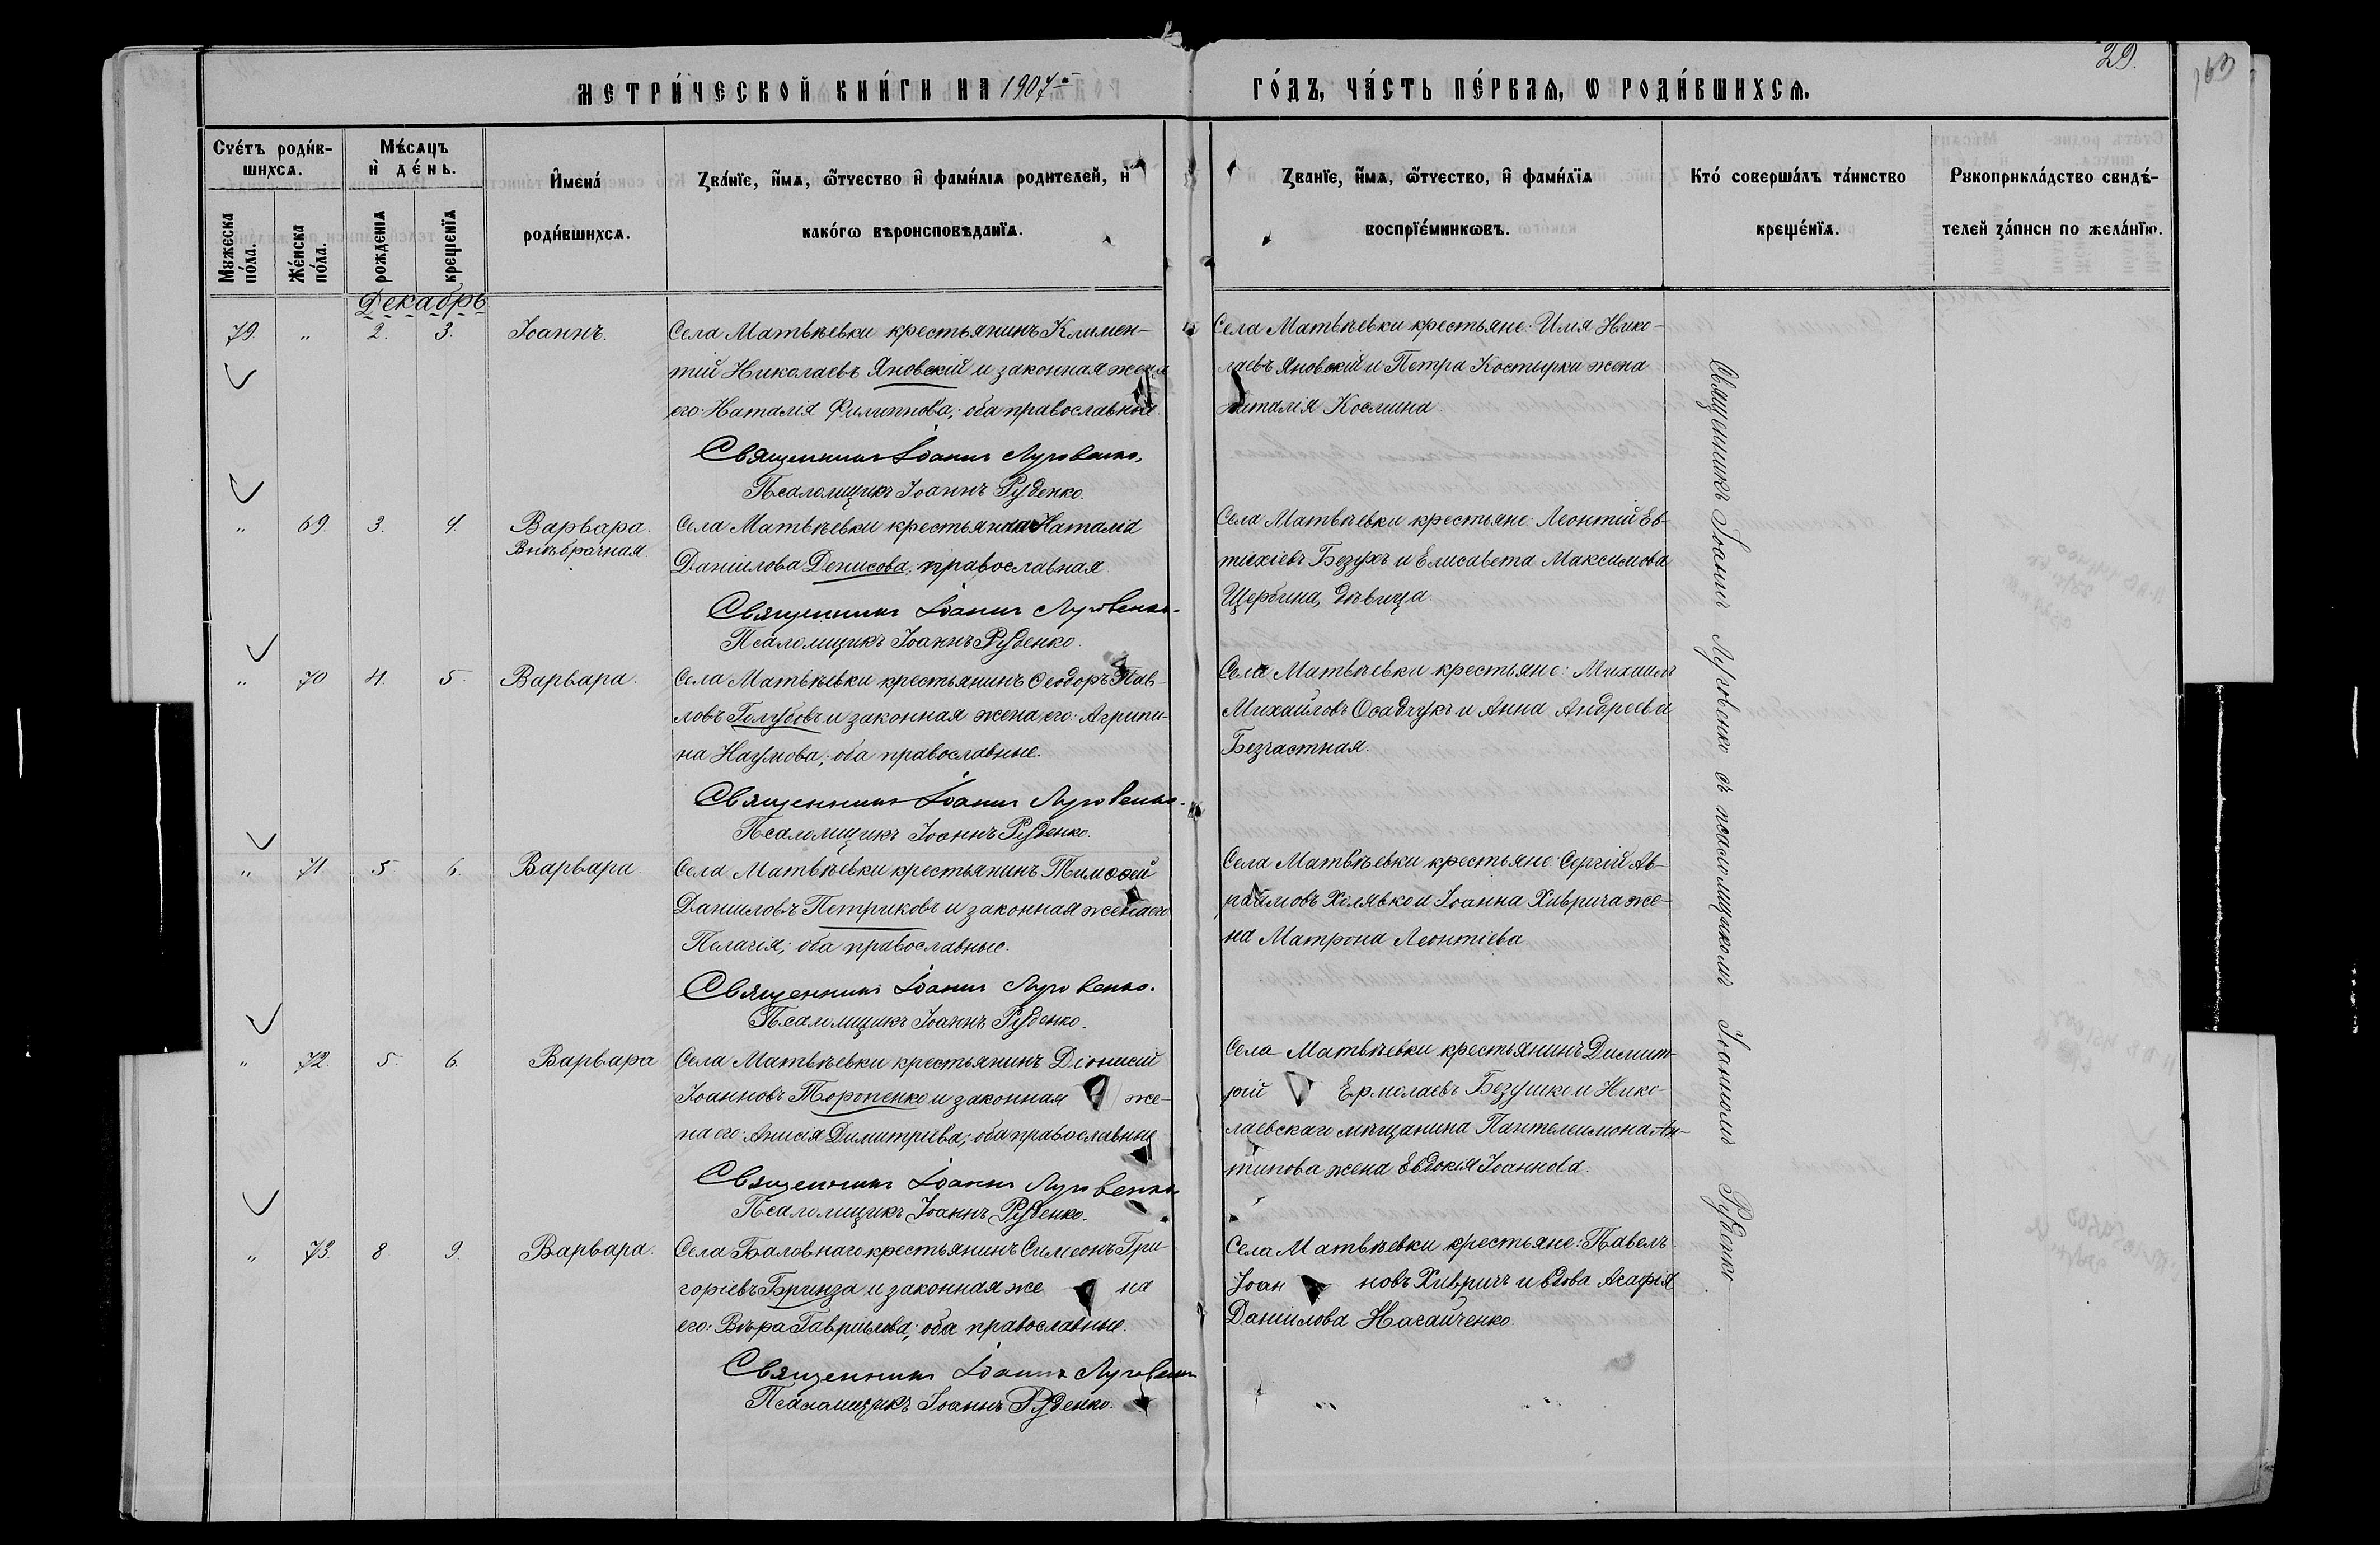 29.
163
МЕТРИ́ЧЕСКОЙ КНИ́ГИ НА 1907й ГО́ДЪ, ЧА́СТЬ ПЕ́РВАѦ, Ѡ РОДИ́ВШИХСѦ.
Сче́тъ роди́в-
шихсѧ.
Мꙋжеска по́ла.
Же́нска по́ла.
Мѣ́сѧцъ
и҆ де́нь.
рожденїѧ
крещенїѧ
И҆мена́
роди́вшихсѧ.
Зва́нїе, и҆́мѧ, ѻ҆́тчество и҆ фами́лїѧ родителей, и҆
како́гѡ вѣроисповѣданїѧ.
Зва́нїе, и҆́мѧ, ѻ҆́тчество, и҆ фами́лїѧ
воспрїе́мникѡвъ.
Кто́ соверша́лъ та́инство
креще́нїѧ.
Рꙋкоприкла́дство свидѣ́-
телей за́писи по жела́нїю.
Декабрь
79. " 2. 3. Іоаннъ. Села Матвѣевки крестьянинъ Климен-
тий Николаевъ Яновскій и законная жена
его: Наталія Филиппова; оба православные
Священникъ Іоаннъ Луговенко.
Псаломщикъ Іоаннъ Руденко.
Села Матвѣевки крестьяне: Илия Нико-
лаевъ Яновскій и Петра Костырки жена
Наталія Космина
" 69. 3. 4. Варвара Села Матвѣевки крестьянка Наталія
Внѣбрачная. Даніилова Денисова; православная
Священникъ Іоаннъ Луговенко.
Псаломщикъ Іоаннъ Руденко.
Села Матвѣевки крестьяне: Леонтій Ев-
тихіевъ Безухъ и Елисавета Максимова
Щербина, дѣвица.
" 70 4. 5. Варвара. Села Матвѣевки крестьянинъ Ѳеодоръ Пав-
ловъ Голубовъ и законная жена его: Агрипи-
на Наумова; оба православные.
Священникъ Іоаннъ Луговенко.
Псаломщикъ Іоаннъ Руденко.
Села Матвѣевки крестьяне: Михаилъ
Михайловъ Осадчукъ и Анна Андреева
Безчастная.
" 71 5 6. Варвара. Села Матвѣевки крестьянинъ Тимоѳей
Даніиловъ Петриковъ и законная жена его
Пелагія; оба православные.
Священникъ Іоаннъ Луговенко.
Псаломщикъ Іоаннъ Руденко.
Села Матвѣевки крестьяне: Сергій Ав-
раамовъ Холявко и Іоанна Хиврича же-
на Матрона Леонтіева
" 72. 5. 6. Варвара Села Матвѣевки крестьянинъ Діонисій
Іоанновъ Торопенко и законная же-
на его: Анисія Димитріева; оба православные
Священникъ Іоаннъ Луговенко
Псаломщикъ Іоаннъ Руденко.
Села Матвѣевки крестьянинъ Димит-
рій Ермолаевъ Безушко и Нико-
лаевскаго мѣщанина Пантелеимона Ан-
типова жена Евдокія Іоаннова.
" 73. 8 9. Варвара. Села Баловнаго крестьянинъ Симеонъ Гри-
горіевъ Бринза и законная жена
его: Вѣра Гавріилова; оба православные.
Священникъ Іоаннъ Луговенко
Псаломщикъ Іоаннъ Руденко.
Села Матвѣевки крестьяне: Павелъ
Іоанновъ Хивричъ и вдова Агафія
Даніилова Нагайченко.
Священникъ Іоаннъ Луговенко съ псаломщикомъ Іоанномъ Руденко.